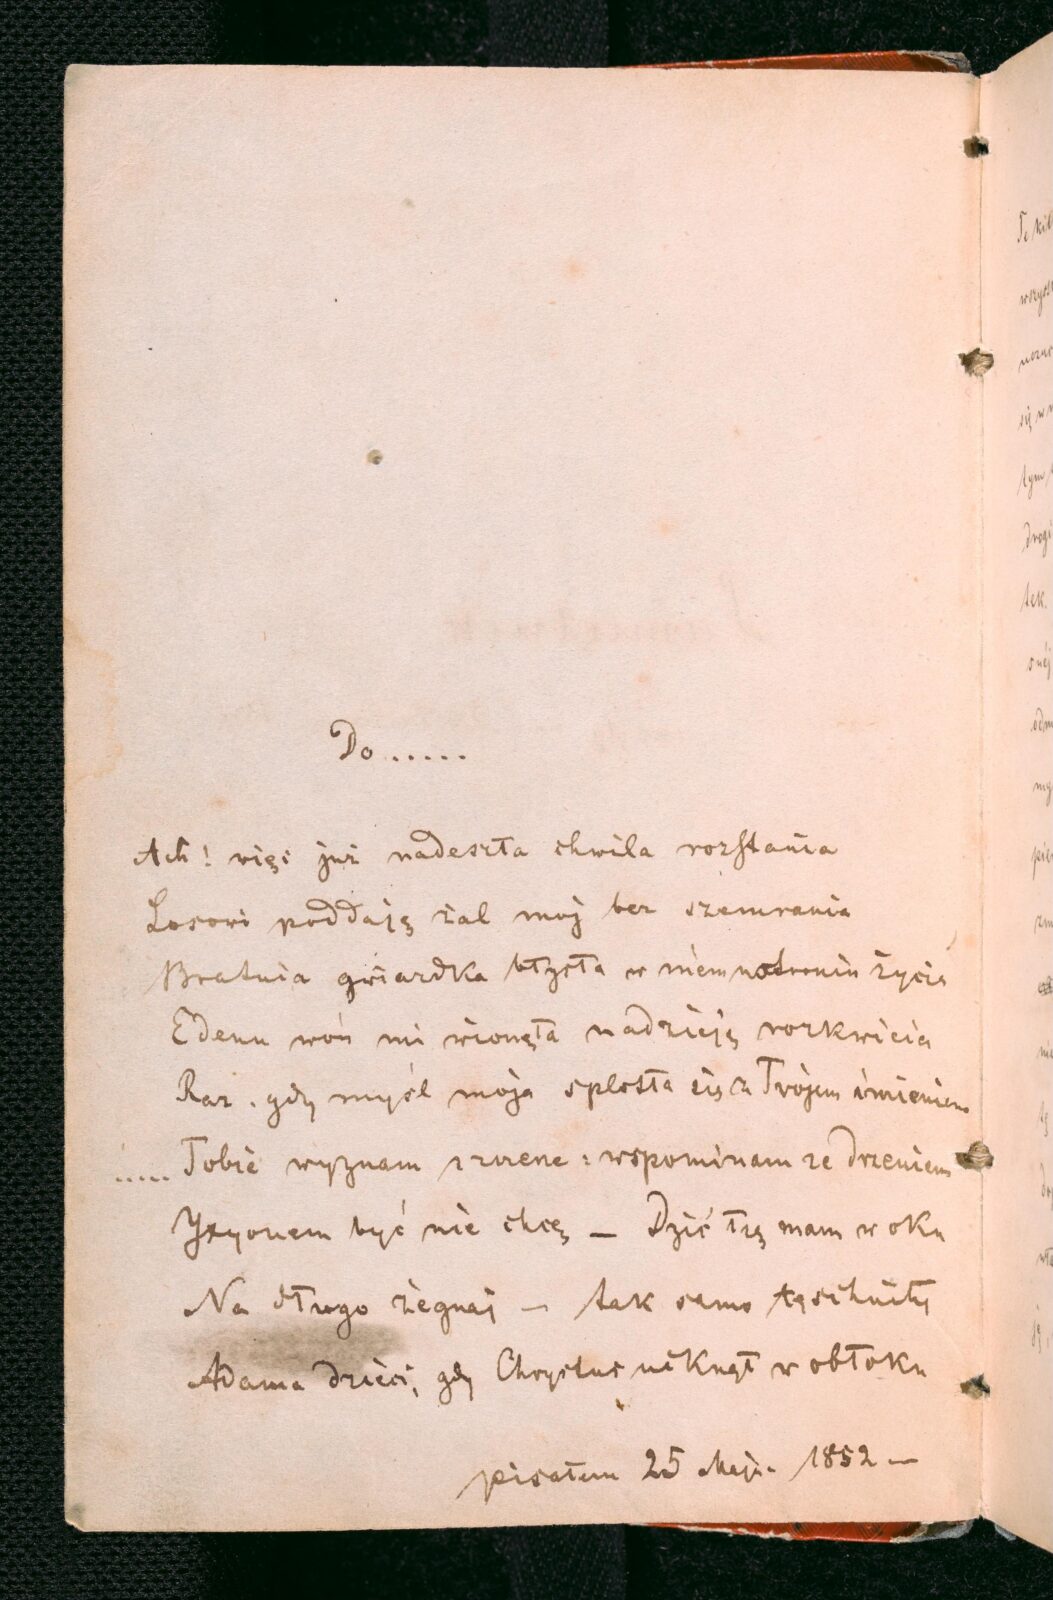 Do .....
Ach! więc już nadeszła chwila rozstania
Losowi poddaję żal moj bez szemrania
Bratnia gwiazdka błysła w niem ustroniu życia
Edenu woń mi wionęła nadzieję rozkwicia
Raz gdy myśl moja splotła się z Twojem imieniem
..... Tobie wyznam szczerze: wspominam ze drżeniem
Yxyonem być nie chcę — Dziś łzę mam w oku
Na długo żegnaj — tak samo tęschniły
Adama dzieci, gdy Chrystus niknął w obłoku
pisałem 25 Maja 1852 —